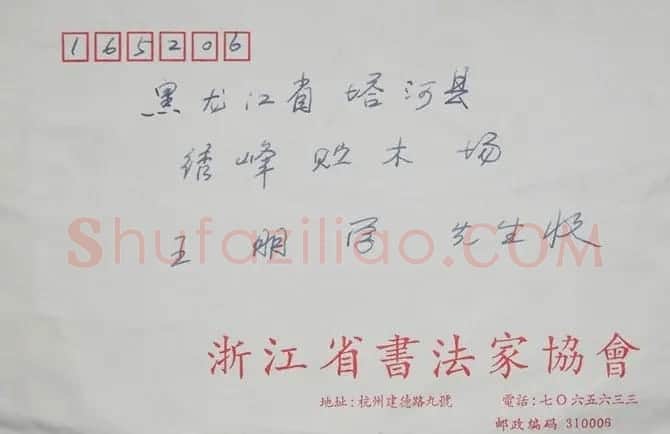 165206
黑龙江省塔河县
绣峰贮木场
王明学先生收
Shufaziliao.COM
浙江省書法家協會
地址:杭州建德路九號 電話:七〇六五六三三
邮政编码 310006